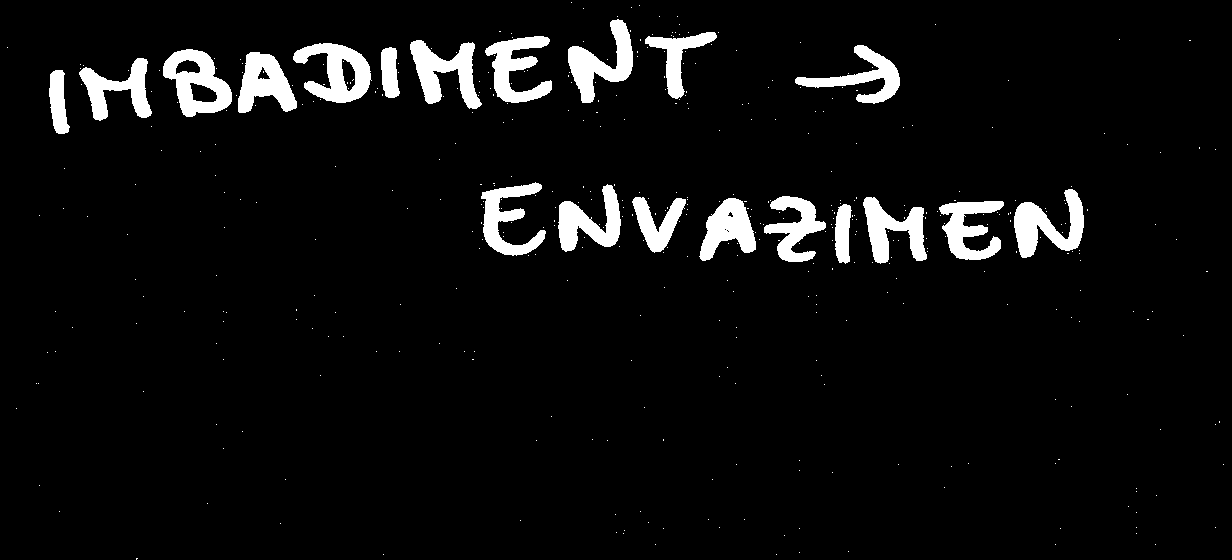 IMBADIMENT →
ENVAZIMEN